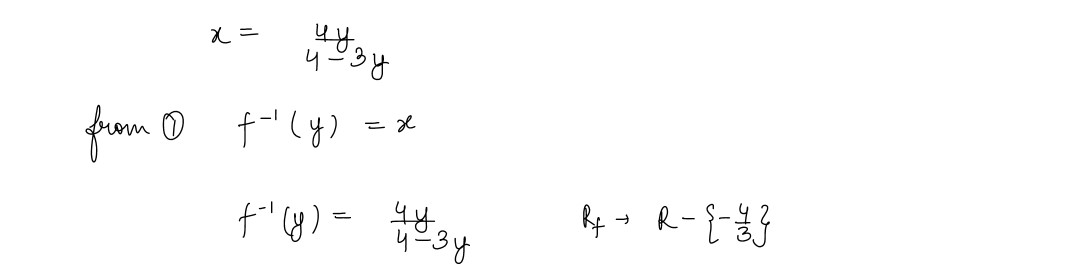 x = 4y / 4 - 3y
from ① f⁻¹(y) = x
f⁻¹(y) = 4y / 4 - 3y R_f → R - {-4/3}